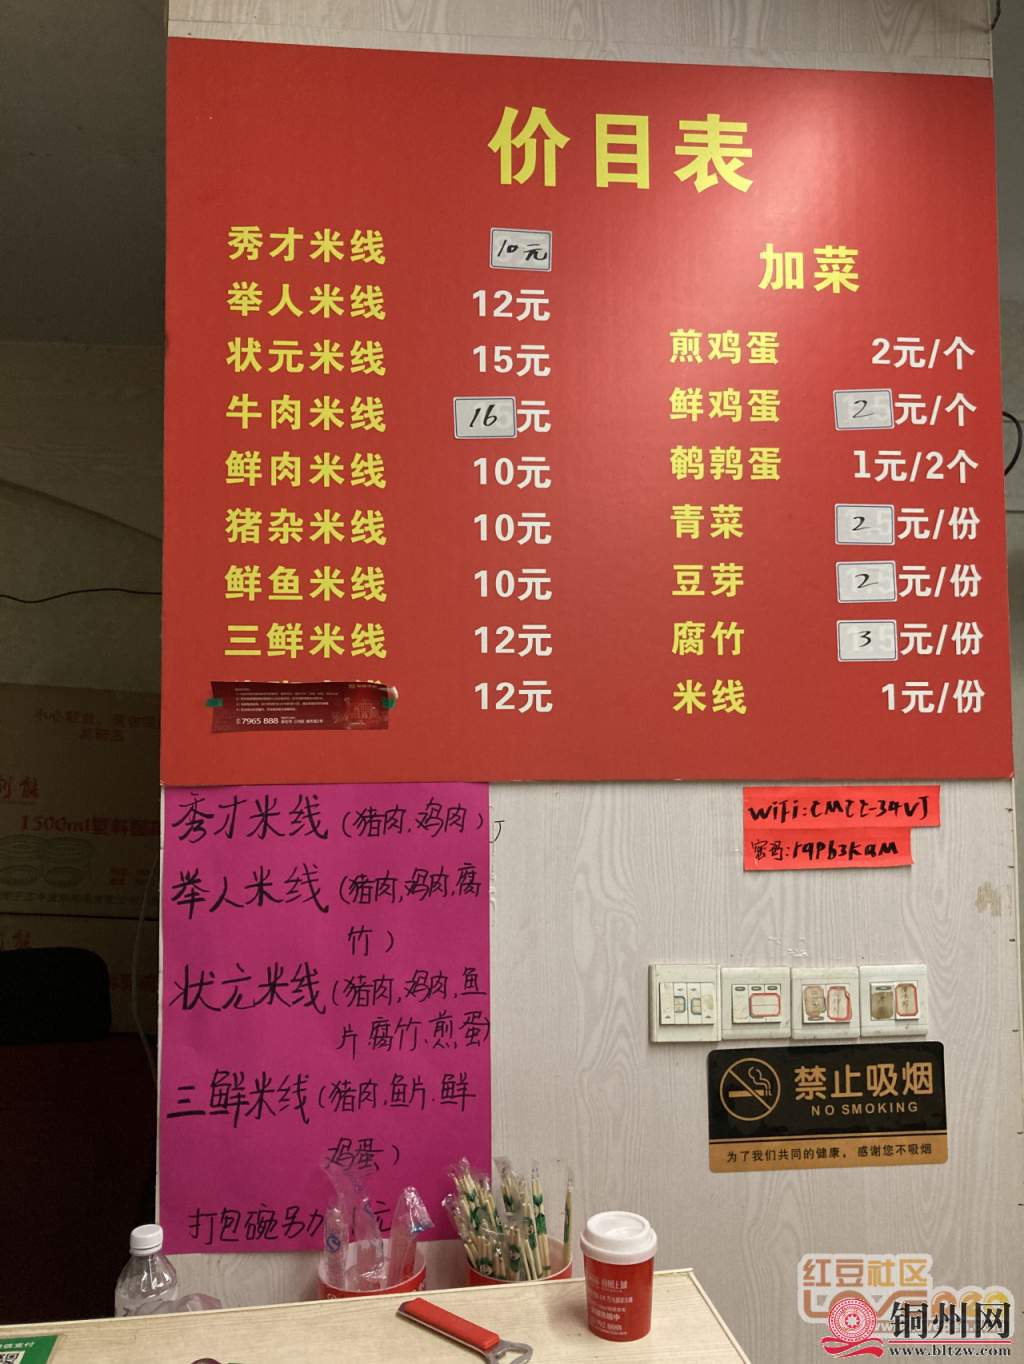 价目表
秀才米线 10元
举人米线 12元
状元米线 15元
牛肉米线 16元
鲜肉米线 10元
猪杂米线 10元
鲜鱼米线 10元
三鲜米线 12元
12元
7965 888
加菜
煎鸡蛋 2元/个
鲜鸡蛋 2元/个
鹌鹑蛋 1元/2个
青菜 2元/份
豆芽 2元/份
腐竹 3元/份
米线 1元/份
秀才米线(猪肉.鸡肉)
举人米线(猪肉,鸡肉,腐
竹)
状元米线(猪肉,鸡肉,鱼
片腐竹.煎蛋)
三鲜米线(猪肉.鱼片.鲜
鸡蛋)
打包碗另加 元
WiFi:CMCC-34VJ
密码:r9Pb3KqM
禁止吸烟
NO SMOKING
为了我们共同的健康，感谢您不吸烟
1500ml
红豆社区
铜州网
www.bltzw.com